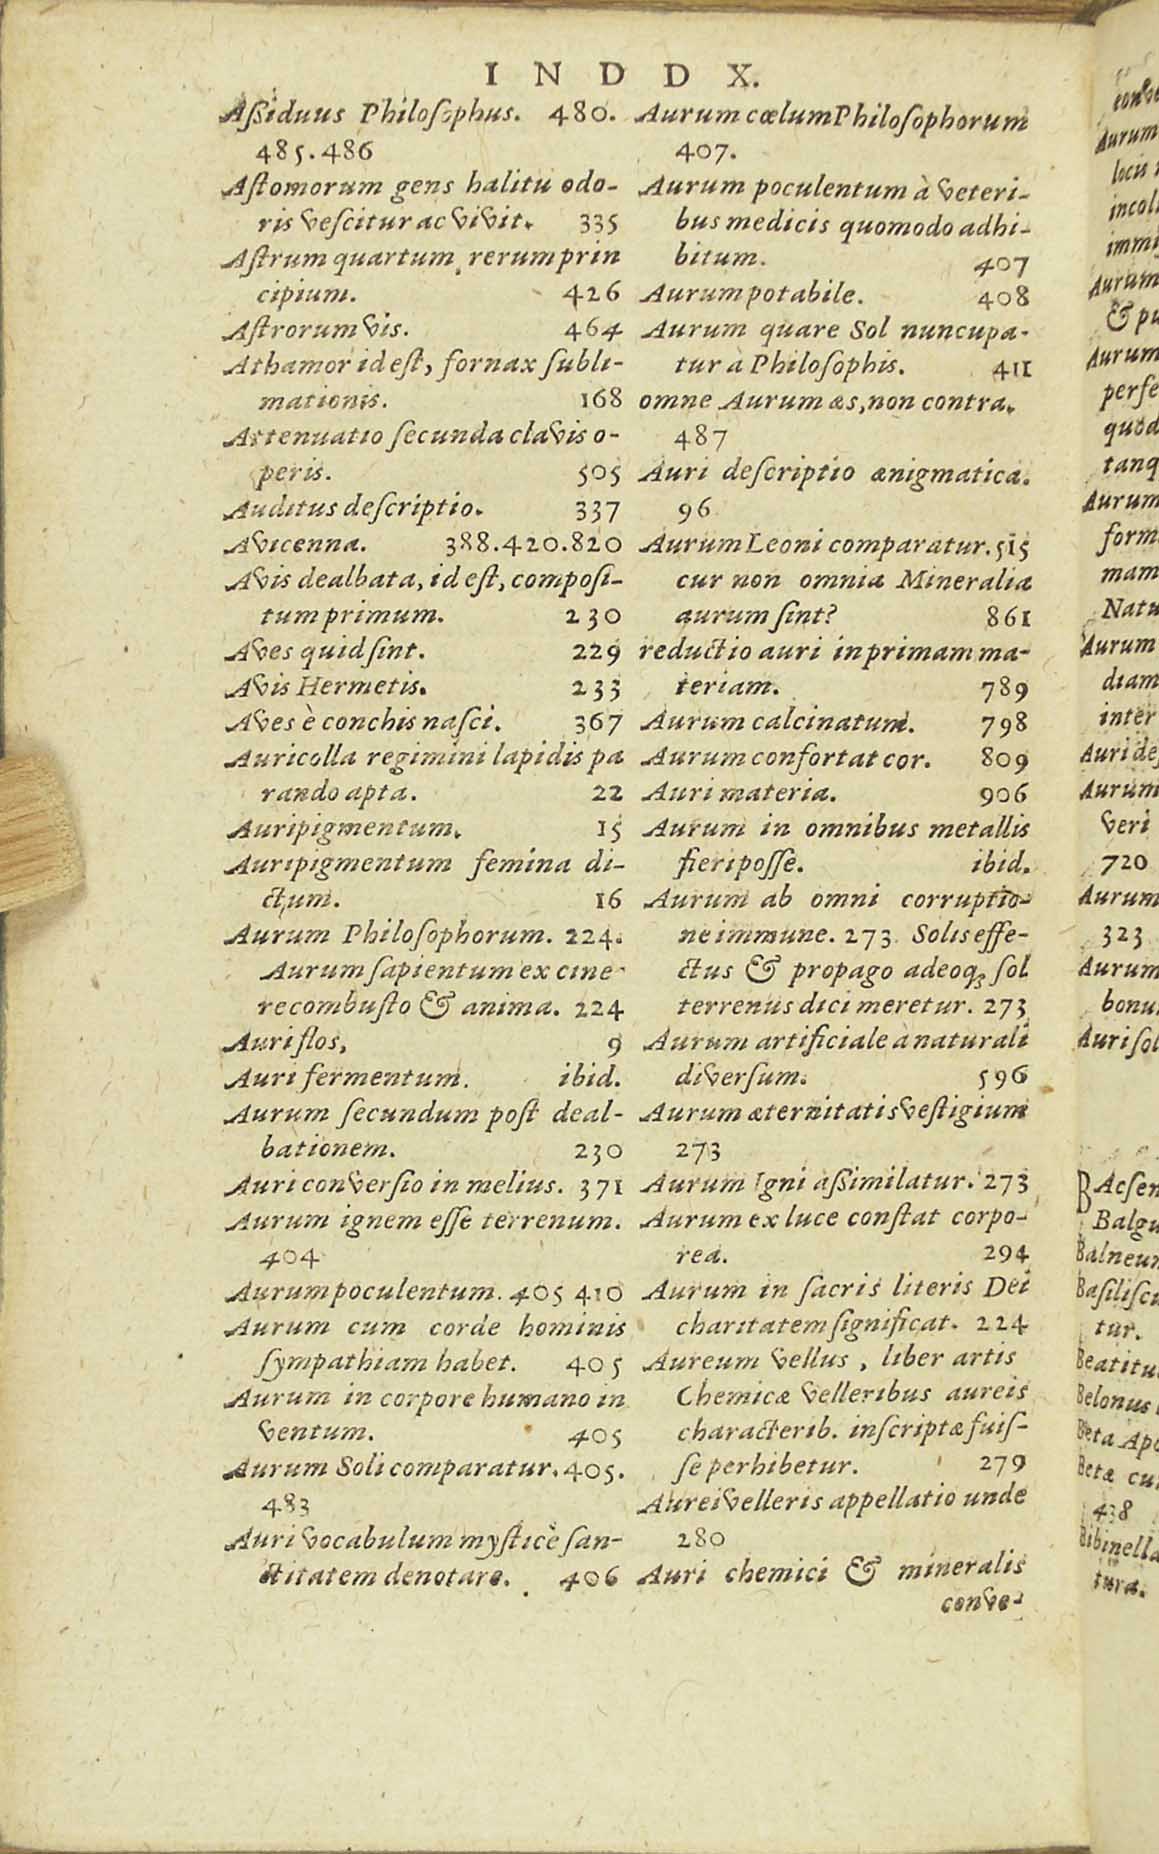 INDDX.
Aſſiduus Philoſophus. 480.
485.486
Aſtomorum gens halitu odo-
ris veſcitur ac vivit. 335
Aſtrum quartum, rerum prin
cipium. 426
Aſtrorum vis. 464
Athamor id eſt, fornax ſubli-
mationis. 168
Attenuatio ſecunda clavis o-
peris. 505
Auditus deſcriptio. 337
Avicenna. 388.420.820
Avis dealbata, id eſt, compoſi-
tum primum. 230
Aves quid ſint. 229
Avis Hermetis. 233
Aves è conchis naſci. 367
Auricolla regimini lapidis pa
rando apta. 22
Auripigmentum. 15
Auripigmentum femina di-
ctum. 16
Aurum Philoſophorum. 224.
Aurum ſapientum ex cine
re combuſto & anima. 224
Auri flos, 9
Auri fermentum. ibid.
Aurum ſecundum poſt deal-
bationem. 230
Auri converſio in melius. 371
Aurum ignem eſſe terrenum.
404
Aurum poculentum. 405 410
Aurum cum corde hominis
ſympathiam habet. 405
Aurum in corpore humano in
ventum. 405
Aurum Soli comparatur. 405.
483
Auri vocabulum myſticè ſan-
ctitatem denotare. 406
Aurum cœlum Philoſophorum
407.
Aurum poculentum à veteri-
bus medicis quomodo adhi-
bitum. 407
Aurum potabile. 408
Aurum quare Sol nuncupa-
tur à Philoſophis. 411
omne Aurum æs, non contra.
487
Auri deſcriptio ænigmatica.
96
Aurum Leoni comparatur. 515
cur non omnia Mineralia
aurum ſint? 861
reductio auri in primam ma-
teriam. 789
Aurum calcinatum. 798
Aurum confortat cor. 809
Auri materia. 906
Aurum in omnibus metallis
fieri poſſe. ibid.
Aurum ab omni corruptio-
ne immune. 273 Solis effe-
ctus & propago adeoq; ſol
terrenus dici meretur. 273
Aurum artificiale à naturali
diverſum. 596
Aurum æternitatis veſtigium
273
Aurum Igni aſſimilatur. 273
Aurum ex luce conſtat corpo-
rea. 294
Aurum in ſacris literis Dei
charitatem ſignificat. 224
Aureum vellus, liber artis
Chemicæ velleribus aureis
characterib. inſcriptæ fuiſ-
ſe perhibetur. 279
Aurei velleris appellatio unde
280
Auri chemici & mineralis
conve-
Aurum
incol
Aurum
& pu
Aurum
perfe
quod
tanq
Aurum
form
mam
Natu
Aurum
diam
inter
Auri deſ
Aurum
veri
720
Aurum
323
Aurum
bonu
Auri ſol
BAcſen
Balgu
Balneum
Baſiliſcu
tur.
Beatitu
Belonus
Beta Apo
Betæ cu
438
Bibinella
tura.